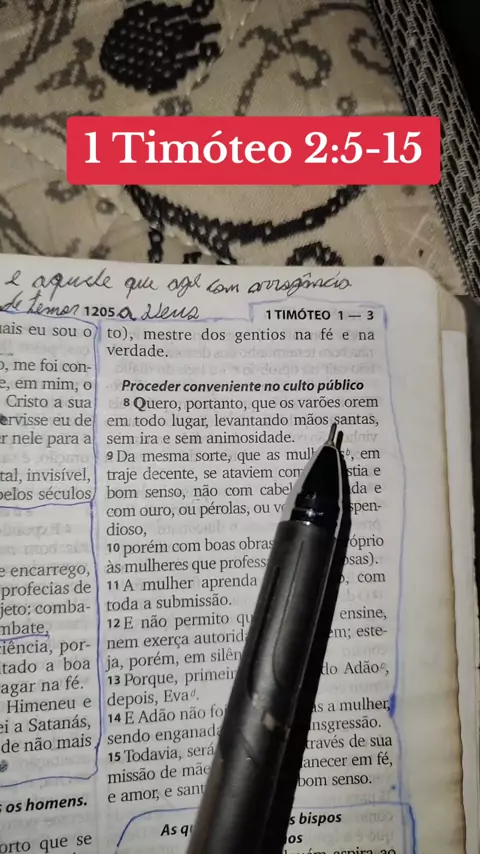 1 Timóteo 2:5-15
e aquele que age com arrogância
de temor 1205 a Deus
1 TIMÓTEO 1 — 3
uais eu sou o
o, me foi con-
e, em mim, o
Cristo a sua
ervisse eu de
r nele para a
tal, invisível,
pelos séculos
e encarrego,
profecias de
jeto: comba-
mbate,
iência, por-
itado a boa
agar na fé.
Himeneu e
ei a Satanás,
de não mais
s os homens.
orto que se
to), mestre dos gentios na fé e na
verdade.
Proceder conveniente no culto público
8 Quero, portanto, que os varões orem
em todo lugar, levantando mãos santas,
sem ira e sem animosidade.
9 Da mesma sorte, que as mul s b, em
traje decente, se ataviem com stia e
bom senso, não com cabel da e
com ouro, ou pérolas, ou ve spen-
dioso,
10 porém com boas obras róprio
às mulheres que profess osas).
11 A mulher aprenda o, com
toda a submissão.
12 E não permito qu ensine,
nem exerça autorida em; este-
ja, porém, em silên
13 Porque, primei do Adão c,
depois, Eva d.
14 E Adão não fo as a mulher,
sendo enganada nsgressão.
15 Todavia, será través de sua
missão de mãe anecer em fé,
e amor, e sant bom senso.
As qu s bispos
os